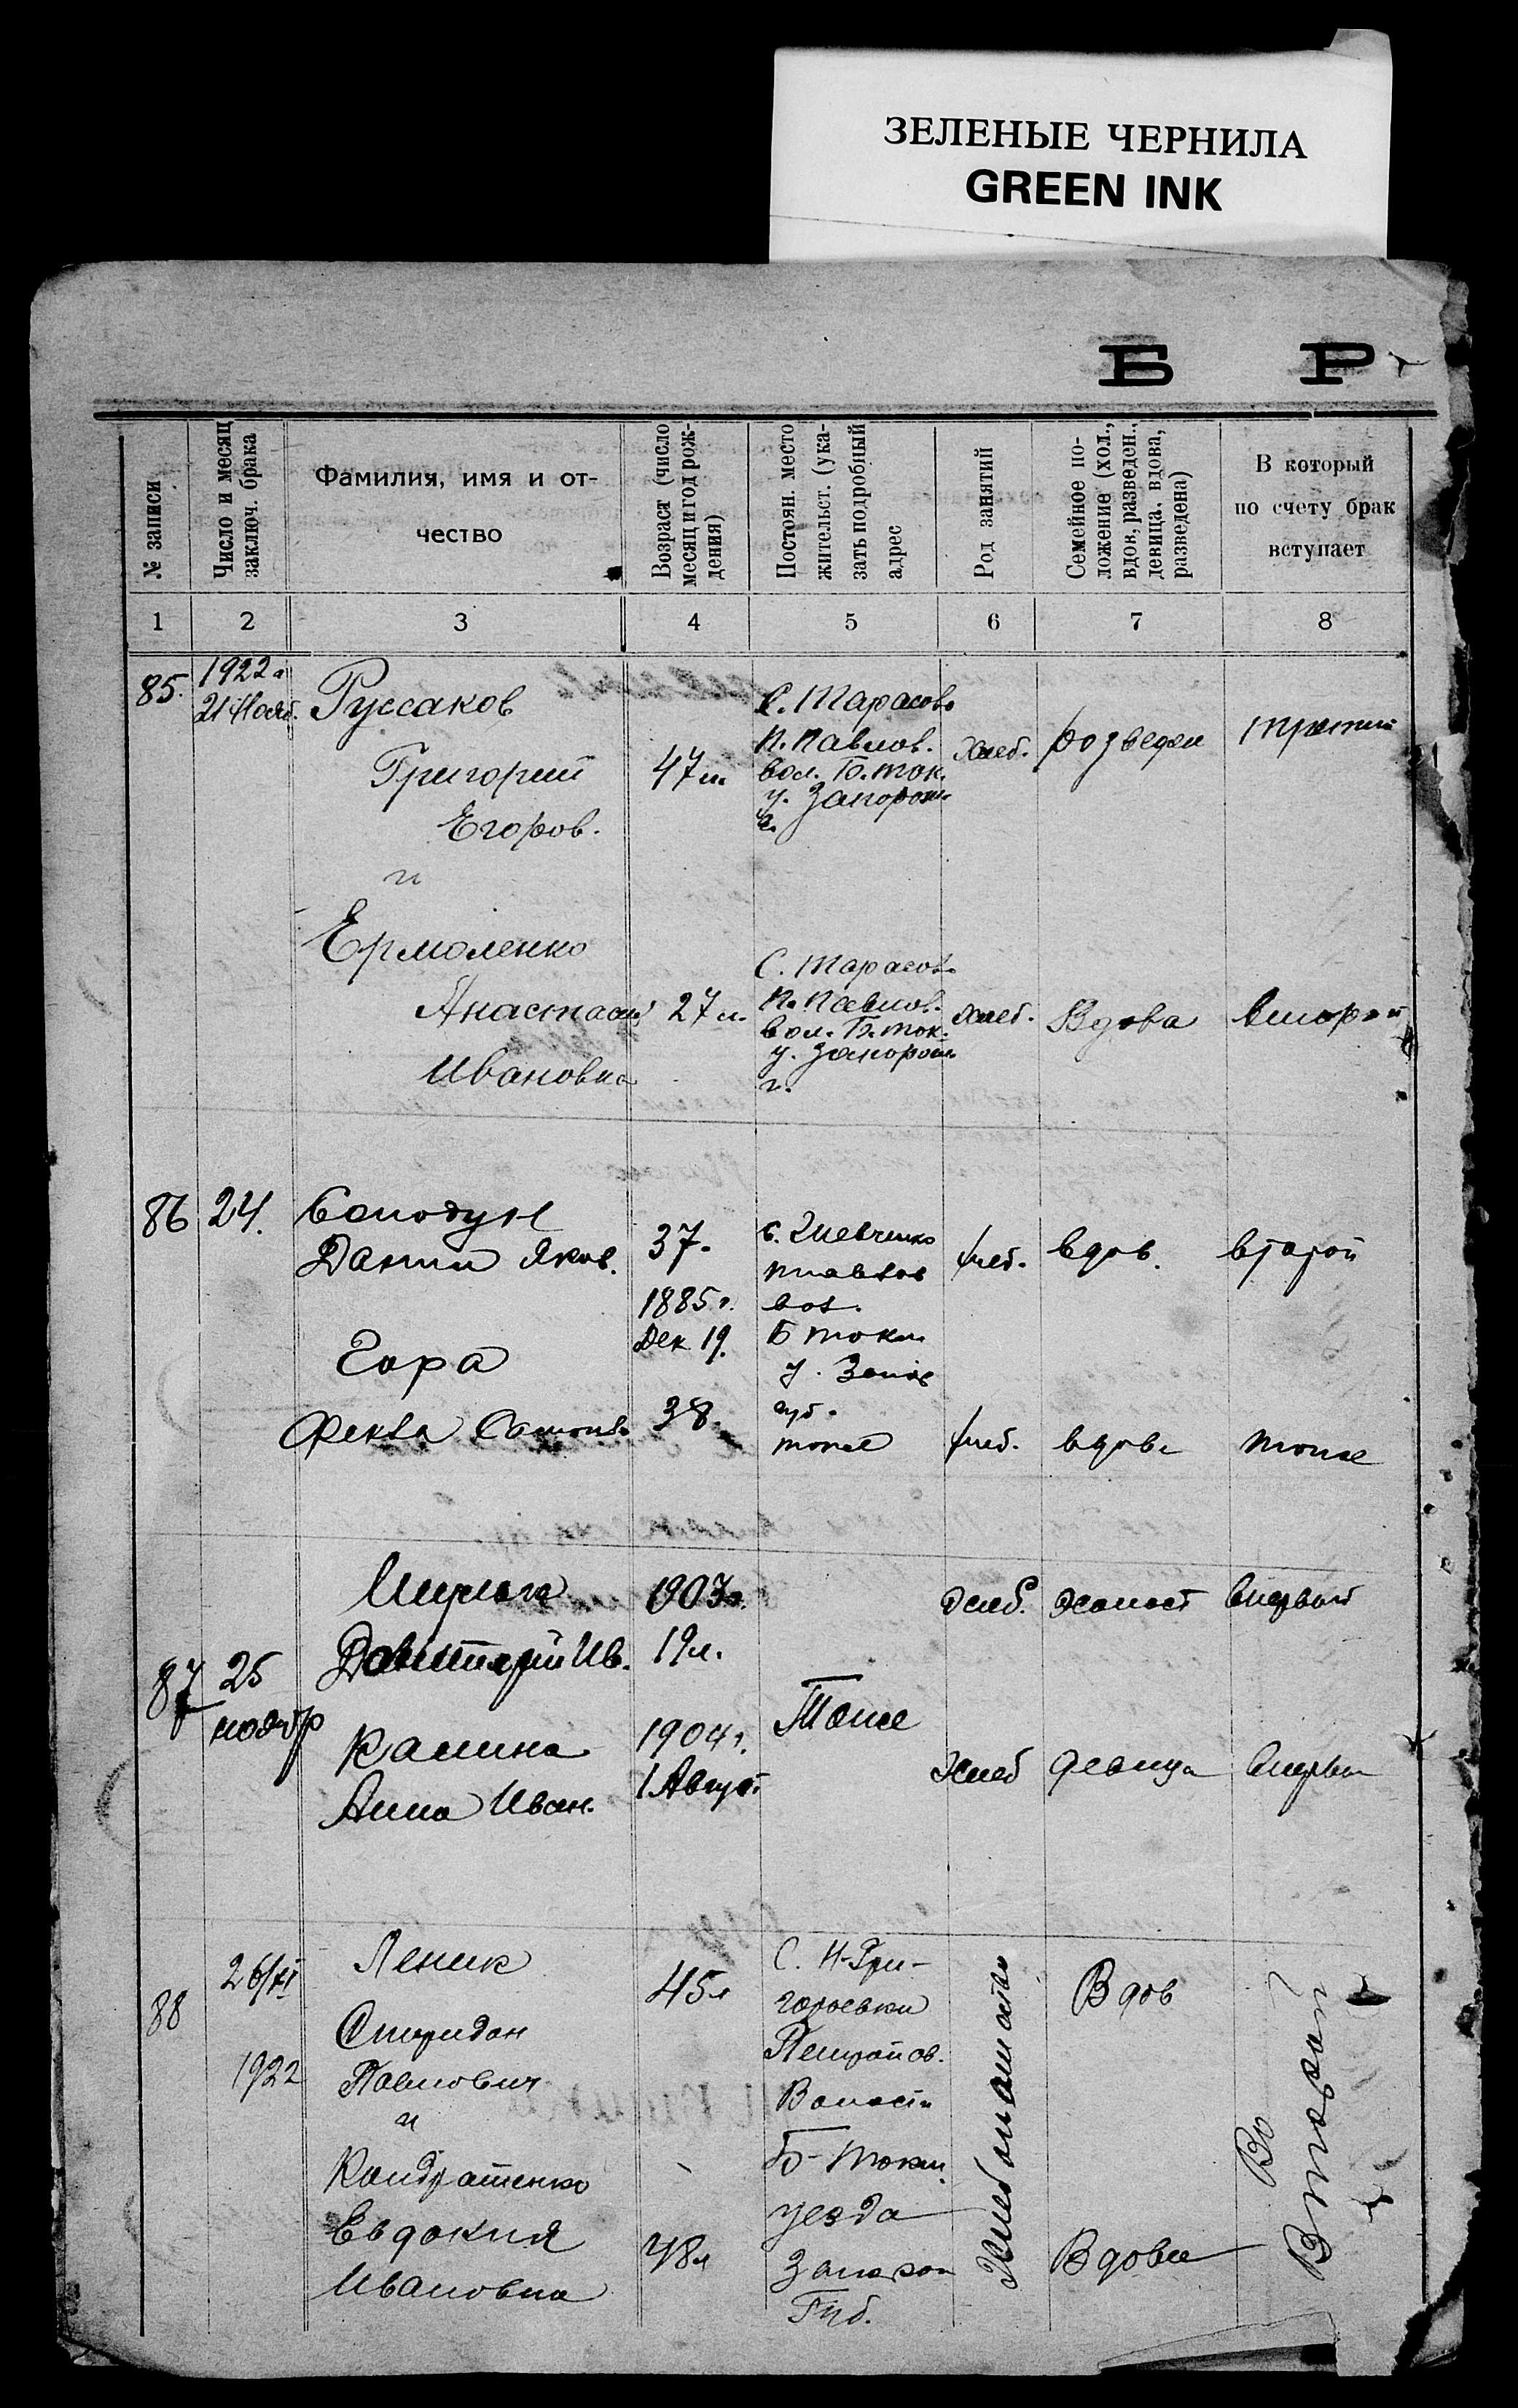 ЗЕЛЕНЫЕ ЧЕРНИЛА
GREEN INK
Б Р
№ записи
Число и месяц
заключ. брака
Фамилия, имя и от-
чество
Возраст (число
месяц и год рож-
дения)
Постоян. место
жительст. (ука-
зать подробный
адрес
Род занятий
Семейное по-
ложение (хол.,
вдов, разведен.,
девица, вдова,
разведена)
В который
по счету брак
вступает
1 2 3 4 5 6 7 8
85.
1922 г
21 Нояб.
Руссаков
Григорий
Егоров.
и
47 л.
С. Тарасов.
П. Павлов.
вол. Б. Ток.
у. Запорож.
г.
хлеб.
розведен
третий
Ермоленко
Анастасия
Ивановна
27 л.
С. Тарасов.
П. Павлов.
вол. Б. Ток.
у. Запорож.
г.
хлеб.
Вдова
второй
86
24.
Данил Яков.
37.
1885 г.
Дек 19.
с. Шевченко
вол.
Б Ток
у. Запор
губ.
хлеб.
вдов.
второй
Гора
Фекла
38.
тоже
хлеб.
вдова
тоже
87
25
ноябр
Ив.
1903 г.
19 л.
Тоже
хлеб.
холост
впервый
Калина
Анна Иван.
1904 г.
1 Август
хлеб
девица
88
26/XI
1922
Леник
Спиридон
Павлович
и
45 л
С. Н-Гри-
горовки
Вдов
Волости
Б-Ток
уезда
Запорож
Губ.
Хлебопашество
Кондратенко
Евдокия
Ивановна
48 л
Вдова
Во
Второй